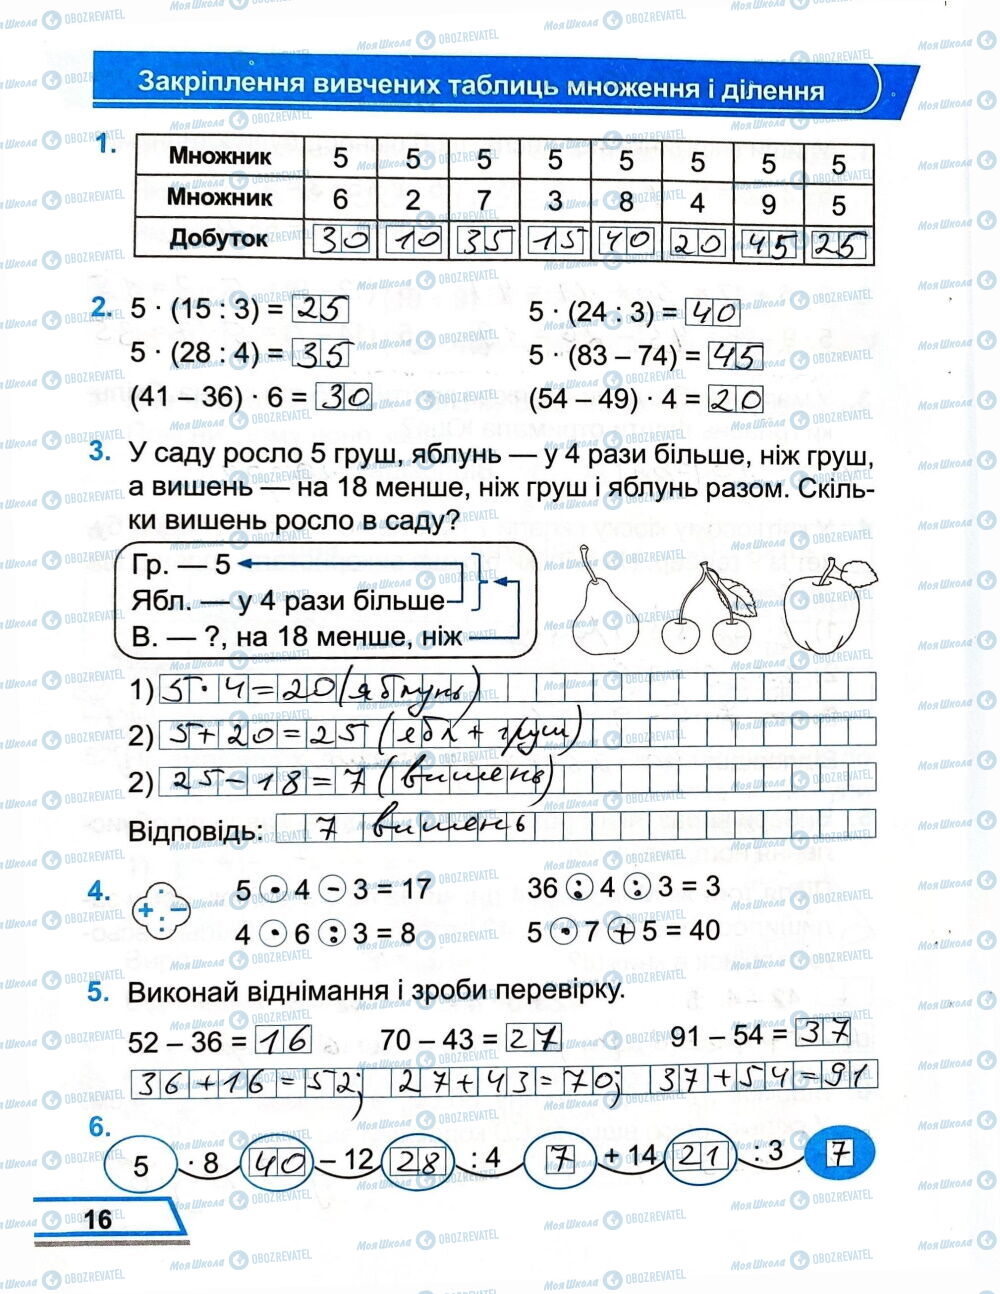 Закріплення вивчених таблиць множення і ділення
1.
Множник 5 5 5 5 5 5 5 5
Множник 6 2 7 3 8 4 9 5
Добуток 30 10 35 15 40 20 45 25
2. 5 · (15 : 3) = 25 5 · (24 : 3) = 40
5 · (28 : 4) = 35 5 · (83 – 74) = 45
(41 – 36) · 6 = 30 (54 – 49) · 4 = 20
3. У саду росло 5 груш, яблунь — у 4 рази більше, ніж груш,
а вишень — на 18 менше, ніж груш і яблунь разом. Скіль-
ки вишень росло в саду?
Гр. — 5
Ябл. — у 4 рази більше
В. — ?, на 18 менше, ніж
1) 5 · 4 = 20 (яблунь)
2) 5 + 20 = 25 (ябл + груш)
2) 25 – 18 = 7 (вишень)
Відповідь: 7 вишень
4. + · – : 5 · 4 – 3 = 17 36 : 4 : 3 = 3
4 · 6 : 3 = 8 5 · 7 + 5 = 40
5. Виконай віднімання і зроби перевірку.
52 – 36 = 16 70 – 43 = 27 91 – 54 = 37
36 + 16 = 52; 27 + 43 = 70; 37 + 54 = 91
6.
5 · 8 40 – 12 28 : 4 7 + 14 21 : 3 7
16
МояШкола OBOZREVATEL